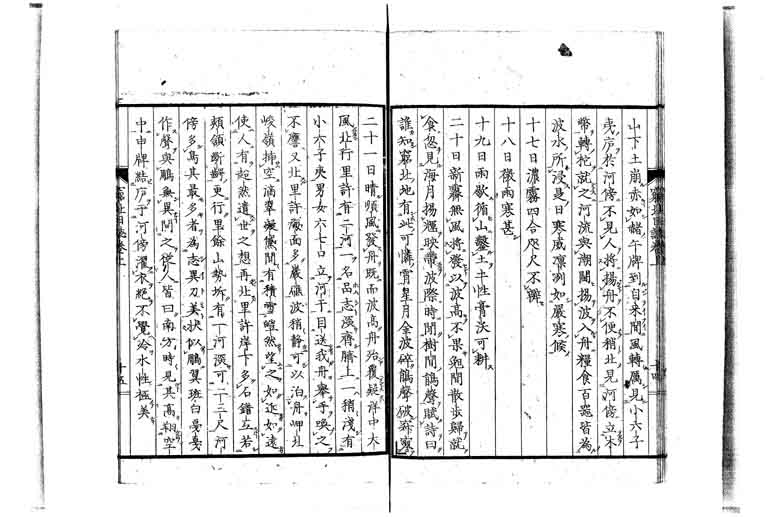 山下土崩赤如赭午牌到自来聞風轉厲見小六子
夷庐於河傍不見人將揚舟不便稍北見河傍立木
帶轉柁就之河流與潮闘揚波入舟糧食百器皆為
波水所浸是日寒威凛冽如嚴寒候
十七日濃霧四合咫尺不辨
十八日微雨寒甚
十九日雨歇循山鑿土半性膏沃可耕
二十日新霽無風將發以波高不果夗間散歩歸就
食忽見海月揚輝映帶波際時聞樹間鵑聲賦詩曰
誰知窮北地有此可憐宵星月金波碎鵑聲破寂寥
二十一日晴順風發舟既而波高舟殆覆疑洋中大
風北行里許有二河一名品志深齊臍上一稍淺有
小六子夷男女六七口立河干目送我舟舉手喚之
不應又北里許 面多嚴礁波稍靜可以泊舟岬北
峻嶺挿空滴翠凝黛間有積雪皚然望之如近如遠
使人有超然遺世之想再北里許岸下多石錯立若
頰頷斷齶更行里餘山勢拆有一河深可一丈三尺河
傍多鳥其最多者為志異刀美状似鵬翼斑白戞戞
作聲與鵬無異聞之從人皆曰南方時見其高翔空
中申牌結庐于河傍濯衣絕不覺冷水性極美
窮北日誌卷上
十四
十五